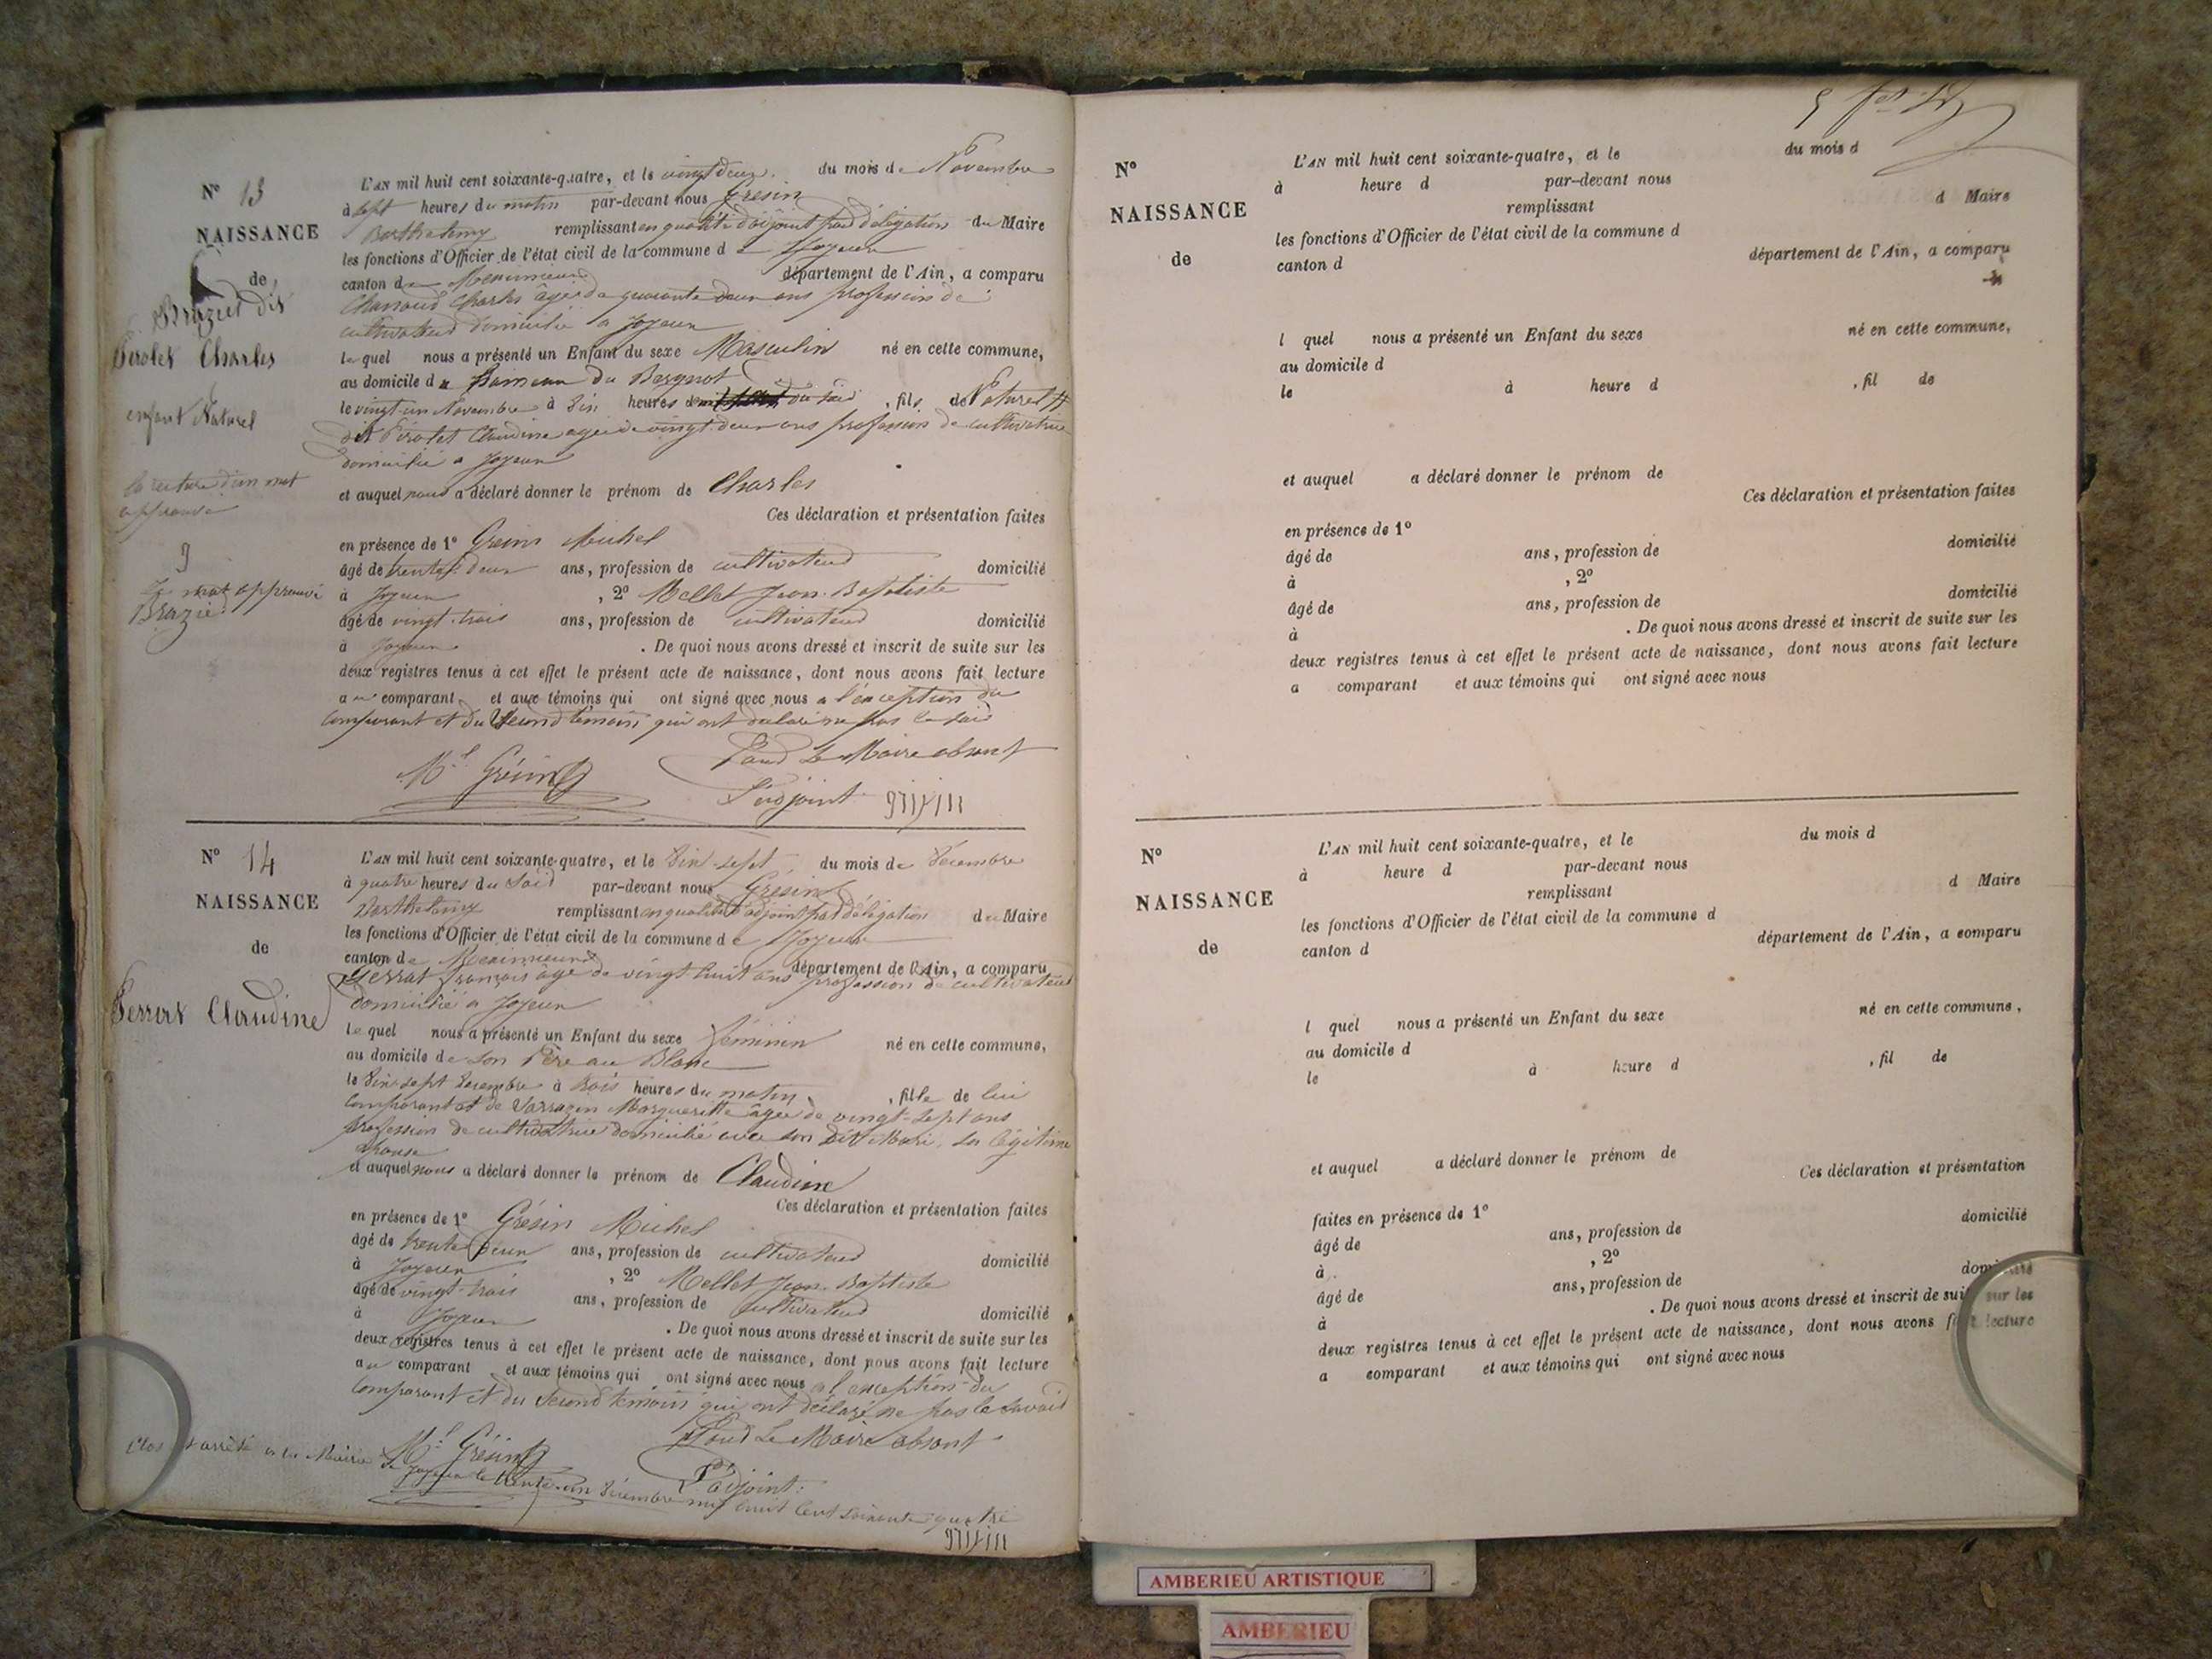 N° 13
NAISSANCE
de
Brazier dit
Pirolet Charles
enfant Naturel
la rature d'un mot
approuvé
L'AN mil huit cent soixante-quatre, et le vingt deux du mois de Novembre
à sept heures du matin par-devant nous Grésin
Barthelemy remplissant en qualité d'adjoint par délégation du Maire
les fonctions d'Officier de l'état civil de la commune de Joyeux
canton de Meximieux département de l'Ain, a comparu
Charles âgé de quarante deux ans profession de
cultivateur domicilié a Joyeux
lequel nous a présenté un Enfant du sexe Masculin né en cette commune,
au domicile d hameau du
le vingt-un Novembre à Six heures du soir, fils de Naturel
dit Pirolet Claudine agée de vingt deux ans profession de cultivatrice
domicilié a Joyeux
et auquel nous a déclaré donner le prénom de Charles
Ces déclaration et présentation faites
en présence de 1° Gresin Michel
âgé de trente deux ans, profession de cultivateur domicilié
à Joyeux, 2° Mellet Jean-Baptiste
âgé de vingt-trois ans, profession de cultivateur domicilié
à Joyeux. De quoi nous avons dressé et inscrit de suite sur les
deux registres tenus à cet effet le présent acte de naissance, dont nous avons fait lecture
au comparant et aux témoins qui ont signé avec nous a l'exception du
comparant et du second témoin qui ont déclaré ne pas le
mot approuvé
Brazie
Pour Le Maire absent
M.l Grésin
L'adjoint
N° 14
NAISSANCE
de
Perrat Claudine
L'AN mil huit cent soixante-quatre, et le Dix-sept du mois de Décembre
à quatre heures du soir par-devant nous Grésin
Barthelemy remplissant en qualité d'adjoint par délégation du Maire
les fonctions d'Officier de l'état civil de la commune de Joyeux
canton de Meximieux département de l'Ain, a comparu
Perrat François âgé de vingt huit ans profession de cultivateur
domicilié a Joyeux
lequel nous a présenté un Enfant du sexe féminin né en cette commune,
au domicile de son Père au Blanc
le Dix-sept Décembre à trois heures du matin, fille de lui
comparant et de Margueritte âgée de vingt-sept ans
profession de cultivatrice domicilié avec son dit Mari, sa légitime
épouse
et auquel nous a déclaré donner le prénom de Claudine
Ces déclaration et présentation faites
en présence de 1° Grésin Michel
âgé de trente deux ans, profession de cultivateur domicilié
à Joyeux, 2° Mellet Jean-Baptiste
âgé de vingt-trois ans, profession de cultivateur domicilié
à Joyeux. De quoi nous avons dressé et inscrit de suite sur les
deux registres tenus à cet effet le présent acte de naissance, dont nous avons fait lecture
au comparant et aux témoins qui ont signé avec nous a l'exception du
comparant et du second témoin qui ont déclaré ne pas le savoir
Pour Le Maire absent
M.l Grésin
L'adjoint:
Clos et arrêté a la Mairie de Joyeux le trente-un Décembre mil huit cent soixante quatre
N°
NAISSANCE
de
L'AN mil huit cent soixante-quatre, et le du mois d
à heure d par-devant nous
remplissant d Maire
les fonctions d'Officier de l'état civil de la commune d
canton d département de l'Ain, a comparu
l quel nous a présenté un Enfant du sexe né en cette commune,
au domicile d
le à heure d , fil de
et auquel a déclaré donner le prénom de
Ces déclaration et présentation faites
en présence de 1°
âgé de ans, profession de domicilié
à , 2°
âgé de ans, profession de domicilié
à . De quoi nous avons dressé et inscrit de suite sur les
deux registres tenus à cet effet le présent acte de naissance, dont nous avons fait lecture
a comparant et aux témoins qui ont signé avec nous
N°
NAISSANCE
de
L'AN mil huit cent soixante-quatre, et le du mois d
à heure d par-devant nous
remplissant d Maire
les fonctions d'Officier de l'état civil de la commune d
canton d département de l'Ain, a comparu
l quel nous a présenté un Enfant du sexe né en cette commune,
au domicile d
le à heure d , fil de
et auquel a déclaré donner le prénom de
Ces déclaration et présentation
faites en présence de 1°
âgé de ans, profession de domicilié
à , 2°
âgé de ans, profession de domicilié
à . De quoi nous avons dressé et inscrit de suite sur les
deux registres tenus à cet effet le présent acte de naissance, dont nous avons fait lecture
a comparant et aux témoins qui ont signé avec nous
AMBERIEU ARTISTIQUE
AMBERIEU